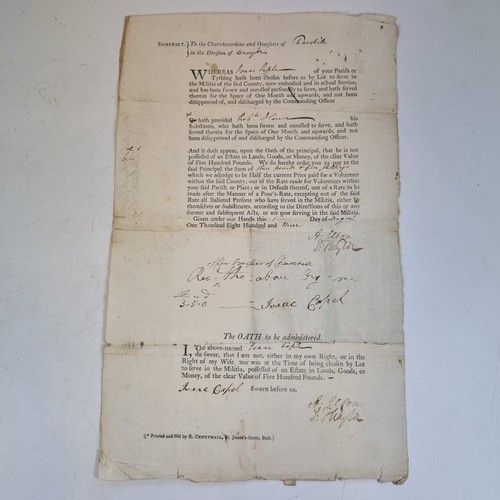 SOMERSET. } To the Churchwardens and Overseers of
in the Division of
WHEREAS Isaac Caple of your Parish or
Tything hath been chosen before us by Lot to serve in
the Militia of the said County, now embodied and in actual Service,
and has been sworn and enrolled personally to serve, and hath served
therein for the Space of One Month and upwards, and not been
disapproved of, and discharged by the Commanding Officer
or hath provided his
Substitute, who hath been sworn and enrolled to serve, and hath
served therein for the Space of One Month and upwards, and not been
disapproved of, and discharged by the Commanding Officer.
And it doth appear, upon the Oath of the principal, that he is not
possessed of an Estate in Lands, Goods, or Money, of the clear Value
of Five Hundred Pounds. We do hereby order you to pay to the
said Principal the Sum of three pounds five shillings
which we adjudge to be Half the current Price paid for a Volunteer
within the said County, out of the Rate made for Volunteers within
your said Parish or Place; or in Default thereof, out of a Rate to be
made after the Manner of a Poor's-Rate, excepting out of the said
Rate all Ballotted Persons who have served in the Militia, either by
themselves or Substitutes, according to the Directions of this or any
former and subsequent Acts, or are now serving in the said Militia.
Given under our Hands this Day of August
One Thousand Eight Hundred and Nine
Rec. the above by me
£ s d
3-5-0 Isaac Capel
The OATH to be administered.
I, The above-named Isaac Caple
do swear, that I am not, either in my own Right, or in the
Right of my Wife, nor was at the Time of being chosen by Lot
to serve in the Militia, possessed of an Estate in Lands, Goods, or
Money, of the clear Value of Five Hundred Pounds.
Isaac Capel Sworn before us,
[* Printed and Sold by R. CRUTTWELL, St. James's-Street, Bath.]